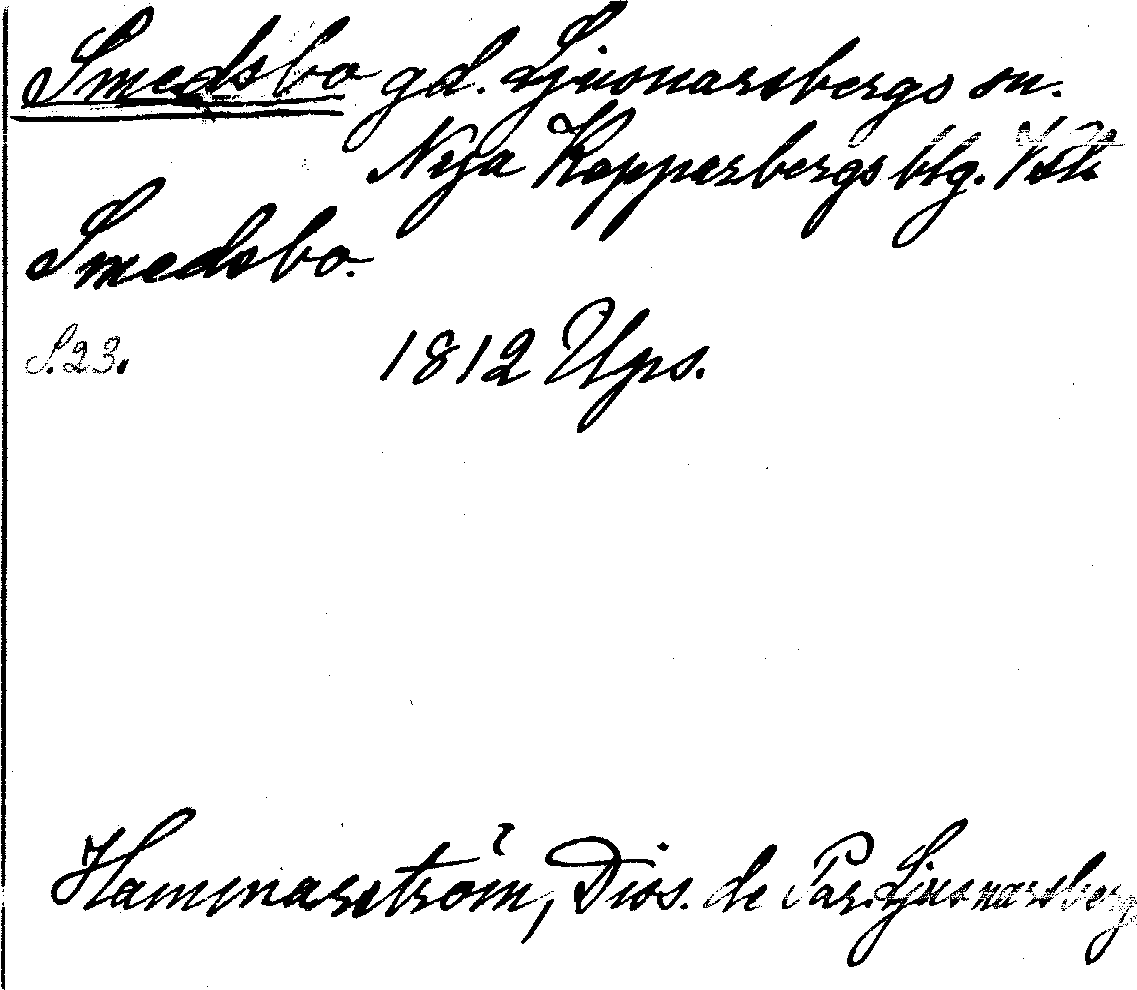 Smedsbo gd. Ljusnarsbergs sn.
Nya Kopparbergs blg.
Smedsbo.
S. 23.
1812 Ups.
Hammarström, Diss. de Par. Ljusnarsberg